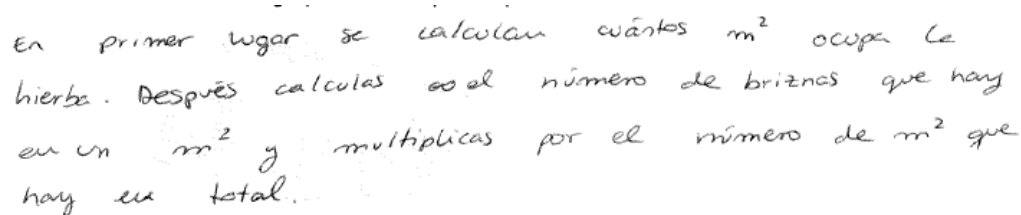 En primer lugar se calculan cuántos m² ocupa la
hierba. Después calculas el número de briznas que hay
en un m² y multiplicas por el número de m² que
hay en total.